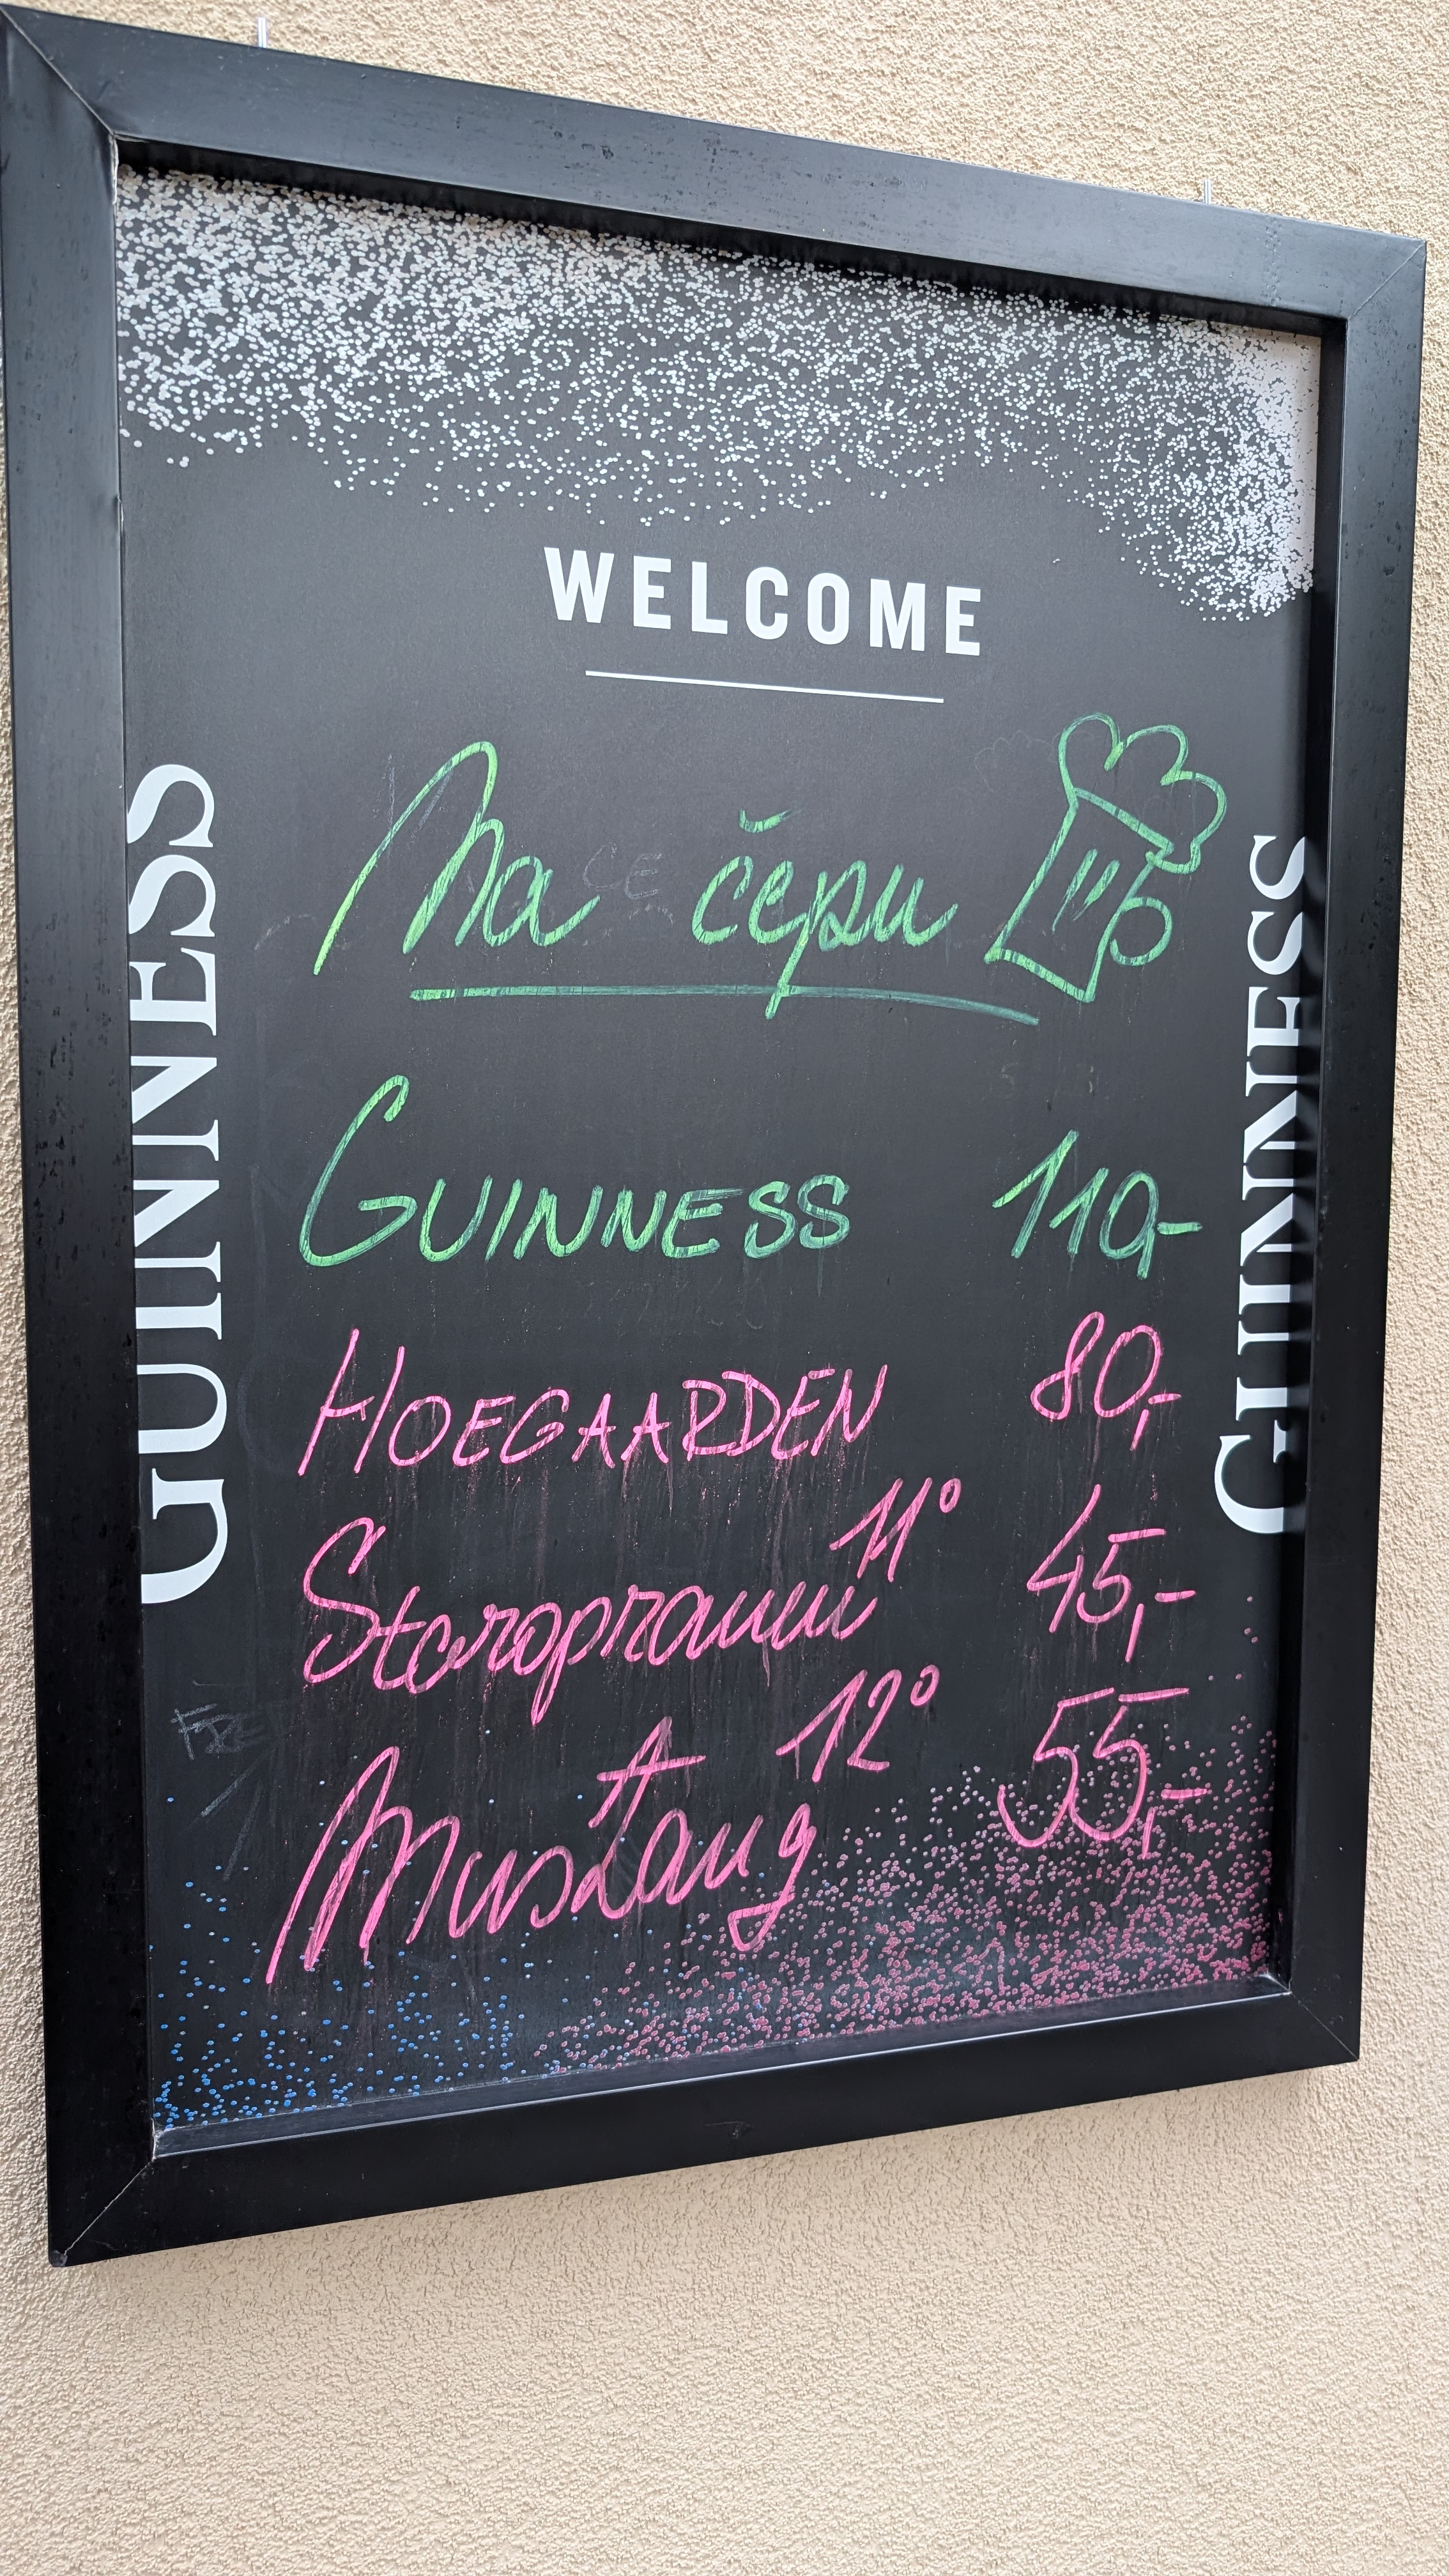 WELCOME
Na čepu
GUINNESS
GUINNESS
GUINNESS 110,-
HOEGAARDEN 80,-
Staropramen 11° 45,-
Mustang 12° 55,-